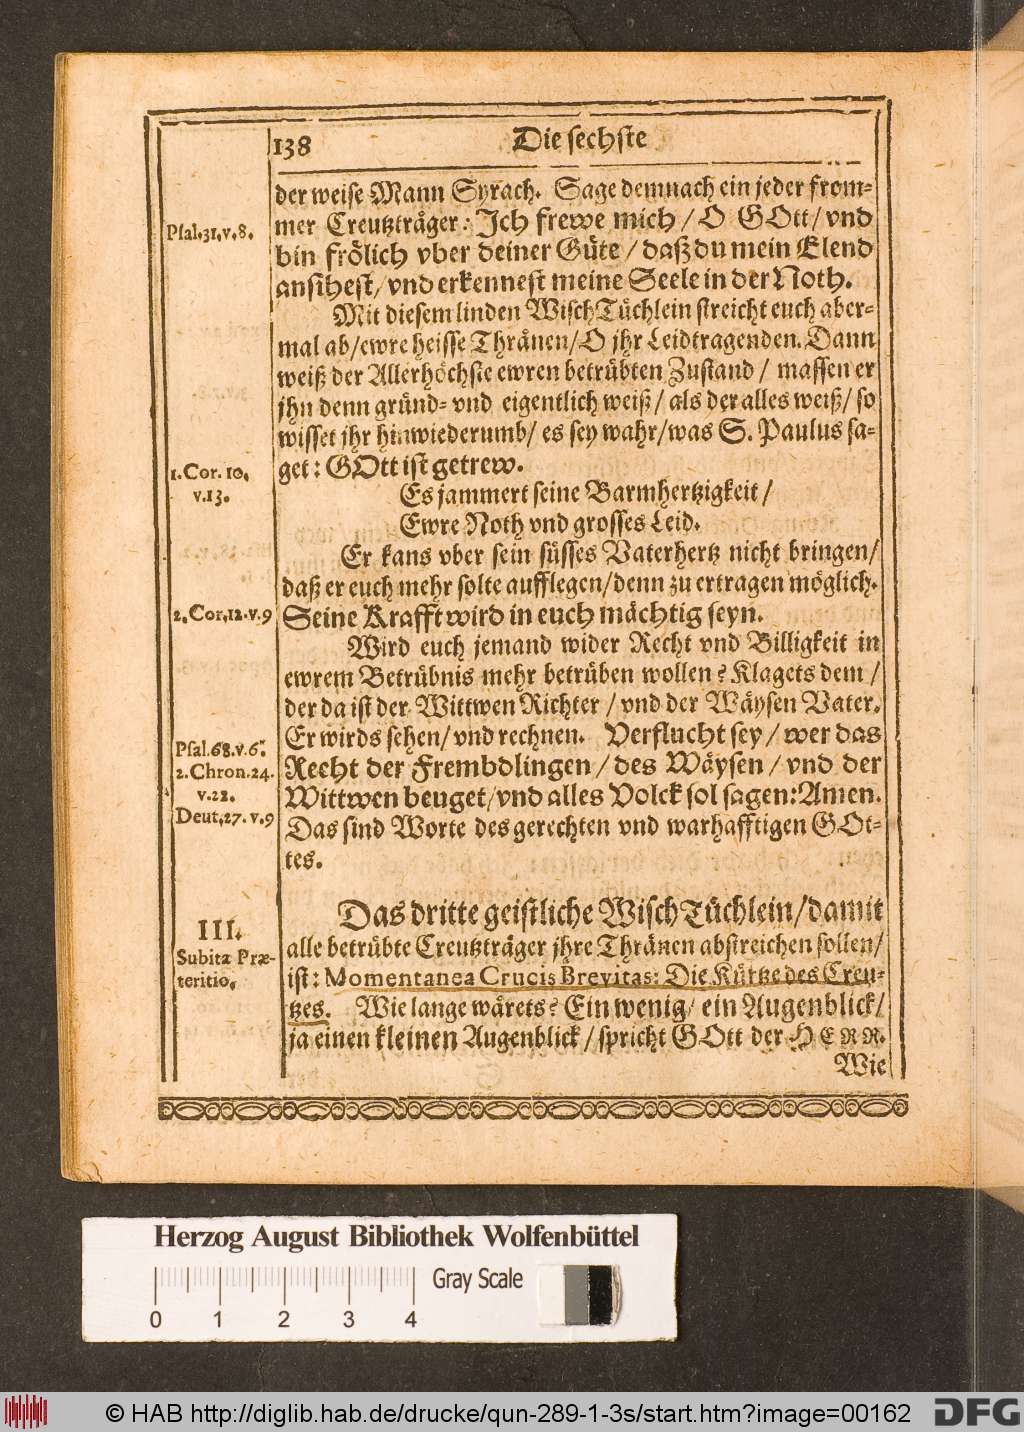 138 Die sechste
der weise Mann Syrach. Sage demnach ein jeder from-
Psal.31.v.8.
mer Creutzträger: Ich frewe mich / O GOtt / vnd
bin frölich vber deiner Güte / daß du mein Elend
ansihest / vnd erkennest meine Seele in der Noth.
Mit diesem linden WischTüchlein streicht euch aber-
mal ab / ewre heisse Thränen / O jhr Leidtragenden. Dann
weiß der Allerhöchste ewren betrübten Zustand / massen er
jhn denn gründ- vnd eigentlich weiß / als der alles weiß / so
wisset jhr hinwiederumb / es sey wahr / was S. Paulus sa-
1. Cor. 10.
v.13.
get: GOtt ist getrew.
Es jammert seine Barmhertzigkeit /
Ewre Noth vnd grosses Leid.
Er kans vber sein süsses Vaterhertz nicht bringen /
daß er euch mehr solte aufflegen / denn zu ertragen möglich.
2. Cor.12.v.9
Seine Krafft wird in euch mächtig seyn.
Wird euch jemand wider Recht vnd Billigkeit in
ewrem Betrübnis mehr betrüben wollen? Klagets dem /
der da ist der Wittwen Richter / vnd der Wäysen Vater.
Psal.68.v.6.
Er wirds sehen / vnd rechnen. Verflucht sey / wer das
2. Chron.24.
v.22.
Recht der Frembdlingen / des Wäysen / vnd der
Wittwen beuget / vnd alles Volck sol sagen: Amen.
Deut.27.v.9
Das sind Worte des gerechten vnd warhafftigen GOt-
tes.
III.
Subita Præ-
teritio.
Das dritte geistliche WischTüchlein / damit
alle betrübte Creutzträger jhre Thränen abstreichen sollen /
ist: Momentanea Crucis Brevitas: Die Kürtze des Creu-
tzes. Wie lange wärets? Ein wenig / ein Augenblick /
ja einen kleinen Augenblick / spricht GOtt der HERR.
Wie
Herzog August Bibliothek Wolfenbüttel
Gray Scale
0 1 2 3 4
© HAB http://diglib.hab.de/drucke/qun-289-1-3s/start.htm?image=00162
DFG